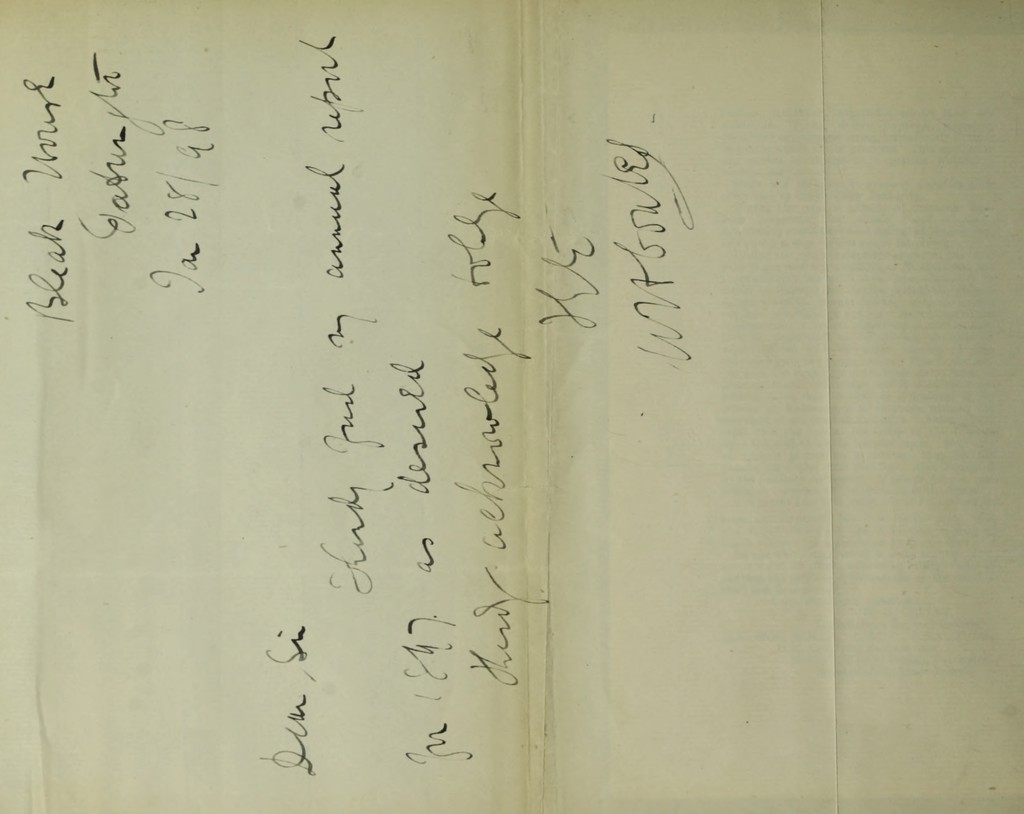 Bleak House
Easington
Jan 28/98
Dear Sir
Kindly find my annual report
for 1897. as desired
Kindly acknowledge & oblige
W A Bowles